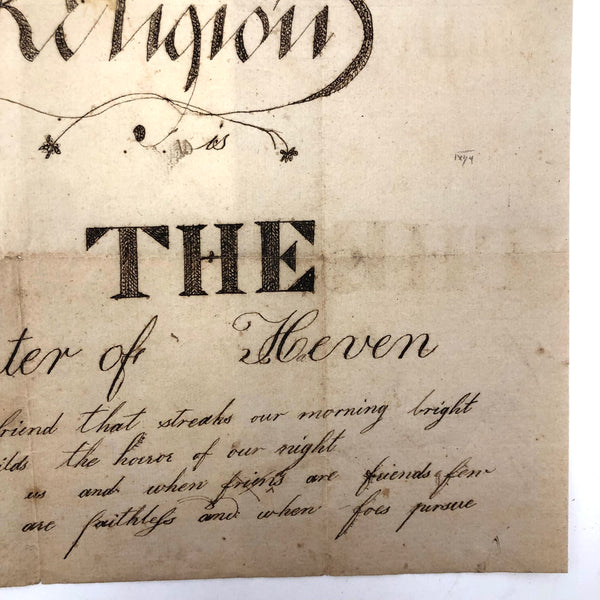 Religion
is
THE
ter of Heven
friend that streaks our morning bright
ilds the horror of our night
us and when friens are friends few
are faithless and when foes pursue